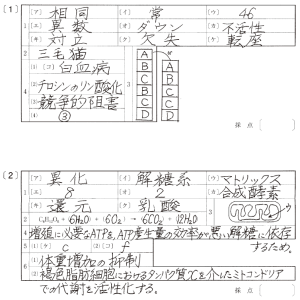 [1]
(ア) 相同 (イ) 常 (ウ) 46
1 (エ) 異数 (オ) ダウン (カ) 不活性
(キ) 対立 (ク) 欠失 (ケ) 転座
2 三毛猫
(1) (コ) 白血病
4 (2) チロシンのリン酸化
(3) 競争的阻害
(4) ③
3
A
B
C
B
C
D
A
B
C
D
採点 [ ]
[2]
(ア) 異化 (イ) 解糖系 (ウ) マトリックス
1 (エ) 8 (オ) 2 (カ) 合成酵素
(キ) 還元 (ク) 乳酸
2 C₆H₁₂O₆ + 6H₂O + 6O₂ → 6CO₂ + 12H₂O
3 ウ
4 増殖に必要なATPを、ATP産生量の効率が悪い解糖に依存するため。
5 (1) (ケ) c (2) (コ) f
6 (1) 体重増加の抑制
(2) 褐色脂肪細胞におけるタンパク質Xを介したミトコンドリアでの代謝を活性化する。
採点 [ ]